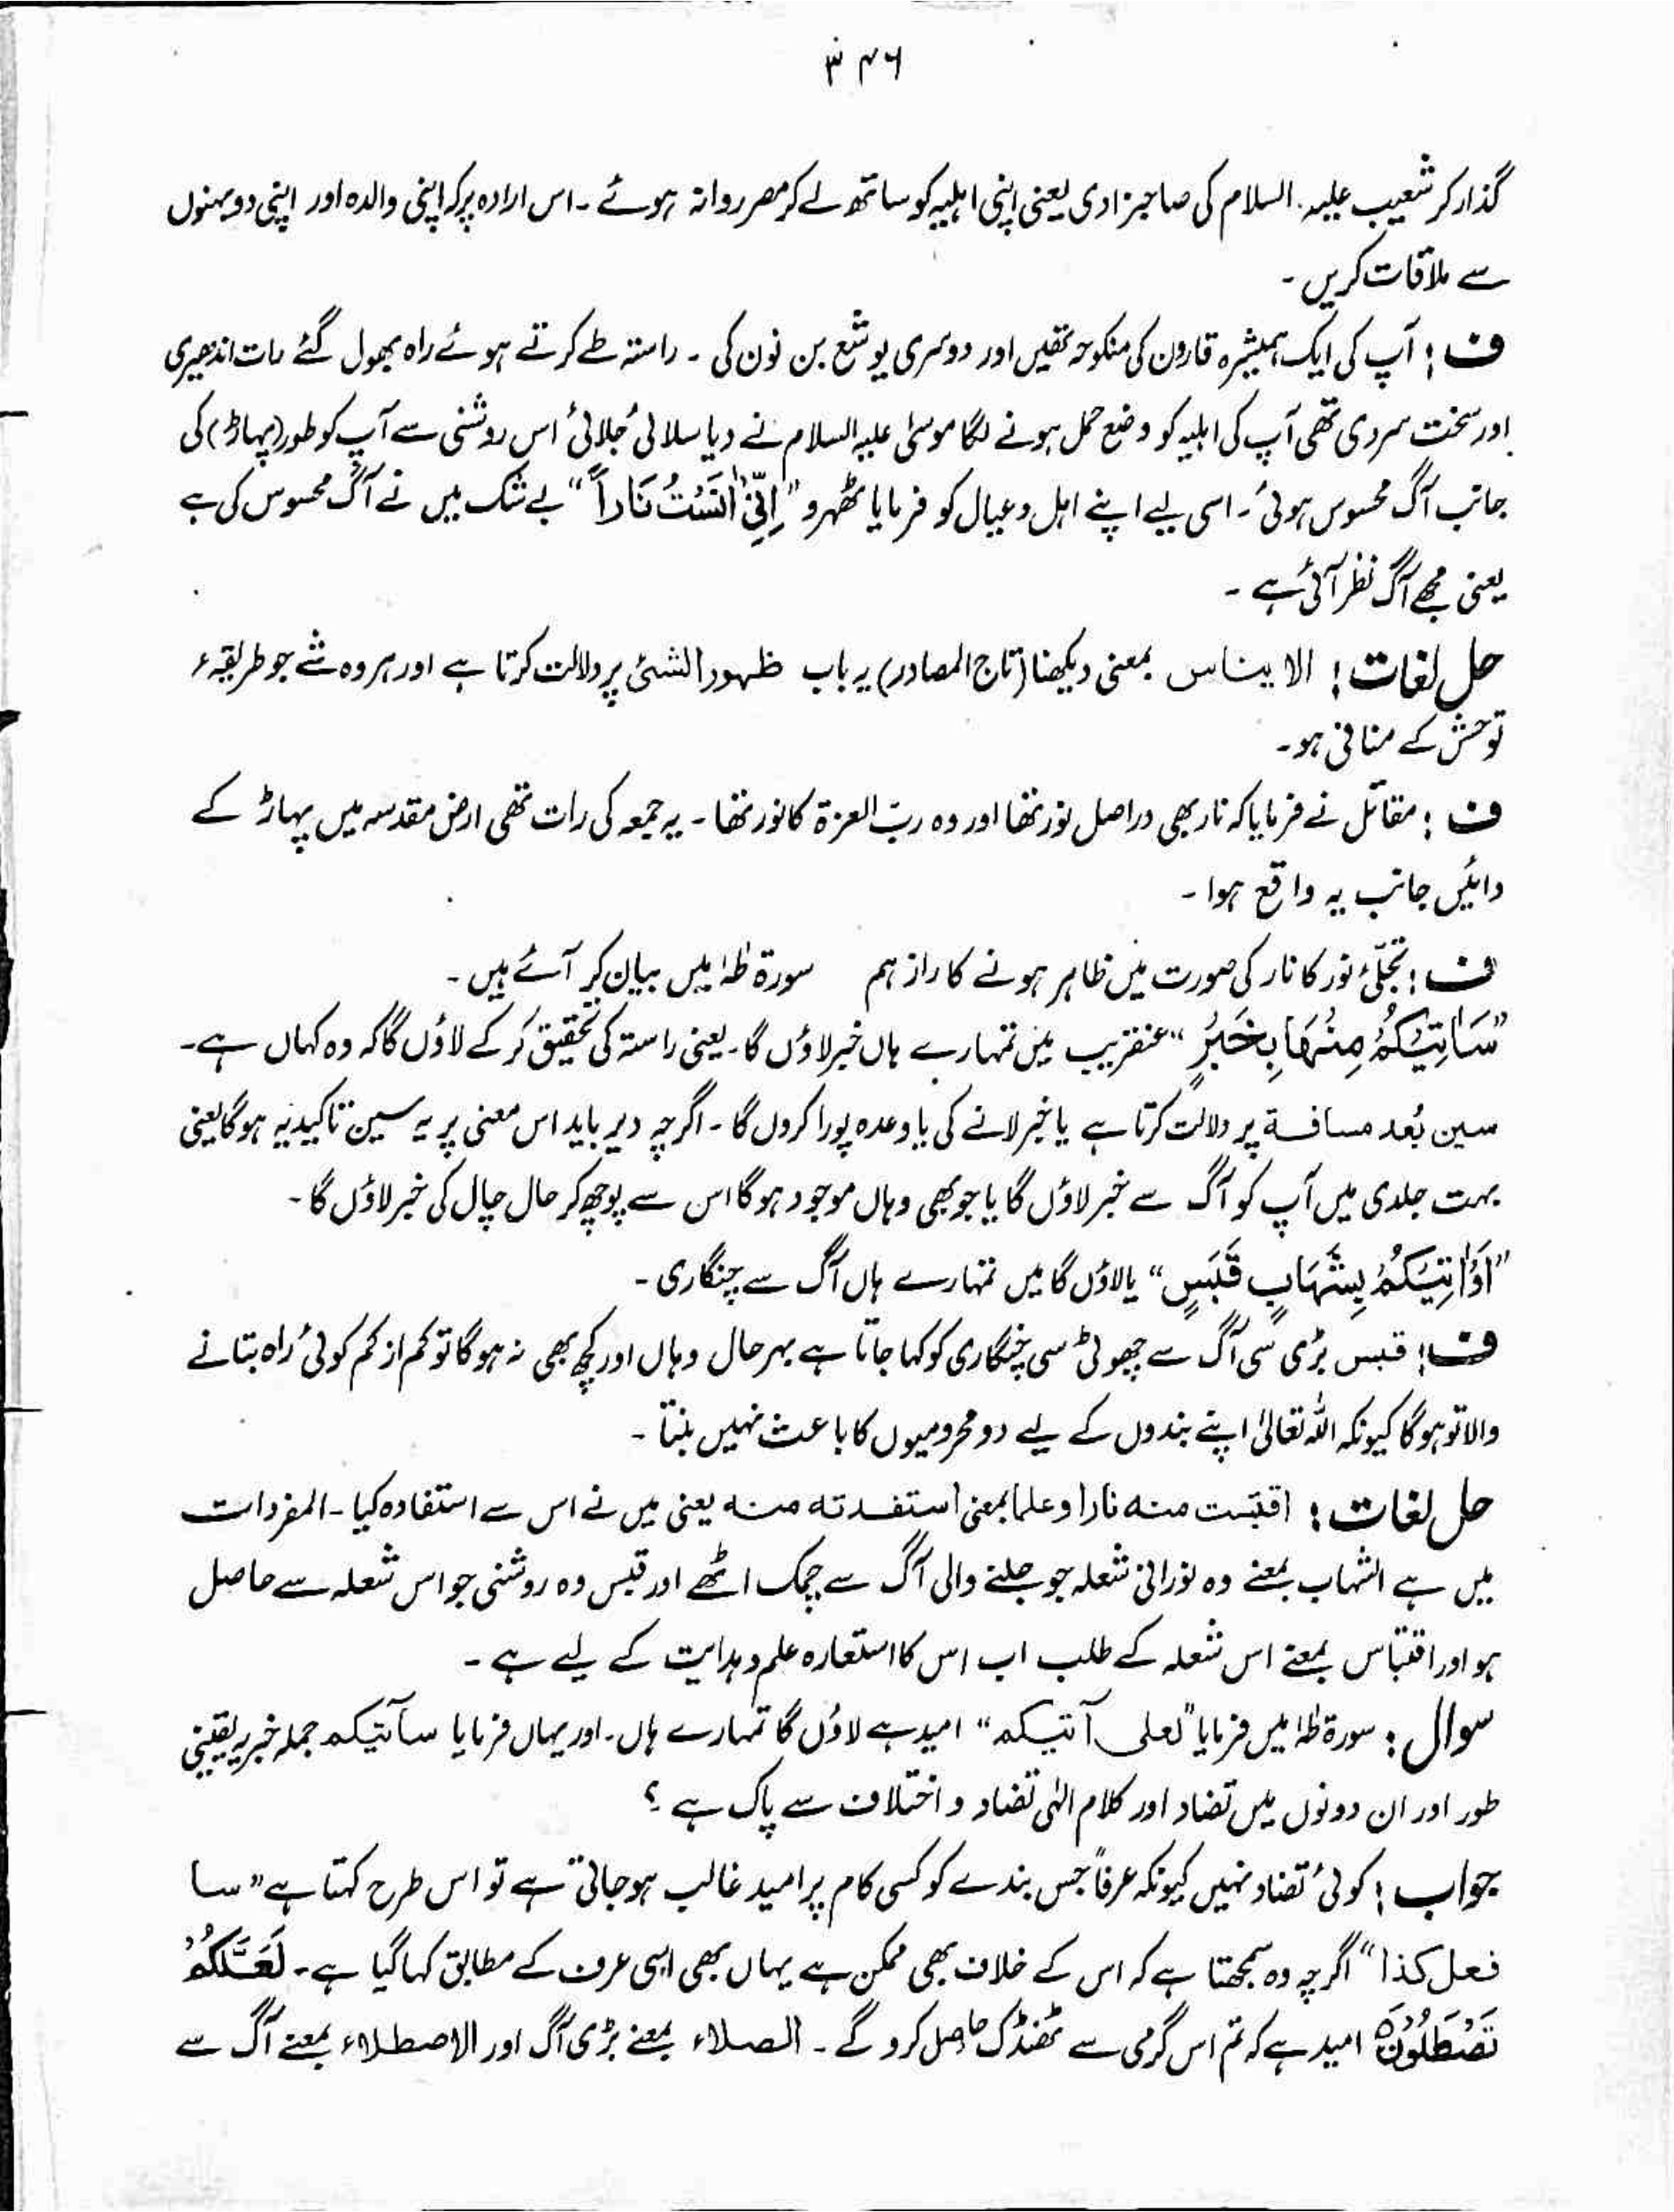 ۳۴۶
گذار کر شعیب علیہ السلام کی صاحبزادی یعنی اپنی اہلیہ کو ساتھ لے کر مصر روانہ ہوئے ۔ اس ارادہ پر کہ اپنی والدہ اور اپنی دو بہنوں
سے ملاقات کریں ۔
ف : آپ کی ایک ہمشیرہ قارون کی منکوحہ تھیں اور دوسری یوشع بن نون کی ۔ راستہ طے کرتے ہوئے راہ بھول گئے رات اندھیری
اور سخت سردی تھی آپ کی اہلیہ کو وضع حمل ہونے لگا موسیٰ علیہ السلام نے دیا سلائی جلائی اس روشنی سے آپ کو طور (پہاڑ) کی
جانب آگ محسوس ہوئی ۔ اسی لیے اپنے اہل و عیال کو فرمایا ٹھہرو " اِنِّیْۤ اٰنَسْتُ نَارًا " بے شک میں نے آگ محسوس کی ہے
یعنی مجھے آگ نظر آئی ہے ۔
حل لغات : الایناس بمعنی دیکھنا (تاج المصادر) یہ باب ظہور الشئی پر دلالت کرتا ہے اور ہر وہ شے جو طریقہء
توحش کے منافی ہو ۔
ف : مقاتل نے فرمایا کہ نار بھی دراصل نور تھا اور وہ ربّ العزۃ کا نور تھا ۔ یہ جمعہ کی رات تھی ارض مقدسہ میں پہاڑ کے
دائیں جانب یہ واقع ہوا ۔
ف : تجلّیٔ نور کا نار کی صورت میں ظاہر ہونے کا راز ہم سورۃ طٰہٰ میں بیان کر آئے ہیں ۔
" سَاٰتِیْكُمْ مِنْهَا بِخَبَرٍ " عنقریب میں تمہارے ہاں خبر لاؤں گا ۔ یعنی راستہ کی تحقیق کر کے لاؤں گا کہ وہ کہاں ہے ۔
سین بُعد مسافۃ پر دلالت کرتا ہے یا خبر لانے کی یا وعدہ پورا کروں گا ۔ اگرچہ دیر باید اس معنی پر یہ سین تاکیدیہ ہوگا یعنی
بہت جلدی میں آپ کو آگ سے خبر لاؤں گا یا جو بھی وہاں موجود ہوگا اس سے پوچھ کر حال چال کی خبر لاؤں گا ۔
" اَوْ اٰتِیْكُمْ بِشِهَابٍ قَبَسٍ " یا لاؤں گا میں تمہارے ہاں آگ سے چنگاری ۔
ف : قبس بڑی سی آگ سے چھوٹی سی چنگاری کو کہا جاتا ہے بہر حال وہاں اور کچھ بھی نہ ہوگا تو کم از کم کوئی راہ بتانے
والا تو ہوگا کیونکہ اللہ تعالیٰ اپنے بندوں کے لیے دو محرومیوں کا باعث نہیں بنتا ۔
حل لغات : اقبست منہ نارا وعلما بمعنی استفدتہ منہ یعنی میں نے اس سے استفادہ کیا ۔ المفردات
میں ہے الشہاب بمعنے وہ نورانی شعلہ جو جلنے والی آگ سے چمک اٹھے اور قبس وہ روشنی جو اس شعلہ سے حاصل
ہو اور اقتباس بمعنے اس شعلہ کے طلب اب اس کا استعارہ علم و ہدایت کے لیے ہے ۔
سوال : سورۃ طٰہٰ میں فرمایا " لعلی آتیکم " امید ہے لاؤں گا تمہارے ہاں ۔ اور یہاں فرمایا سآتیکم جملہ خبریہ یقینی
طور اور ان دونوں میں تضاد اور کلام الٰہی تضاد و اختلاف سے پاک ہے ؟
جواب : کوئی تضاد نہیں کیونکہ عرفاً جس بندے کو کسی کام پر امید غالب ہو جاتی ہے تو اس طرح کہتا ہے " سا
فعل کذا " اگرچہ وہ سمجھتا ہے کہ اس کے خلاف بھی ممکن ہے یہاں بھی اسی عرف کے مطابق کہا گیا ہے ۔ لَعَلَّكُمْ
تَصْطَلُوْنَ امید ہے کہ تم اس گرمی سے ٹھنڈک حاصل کرو گے ۔ الصلاء بمعنے بڑی آگ اور الاصطلاء بمعنے آگ سے